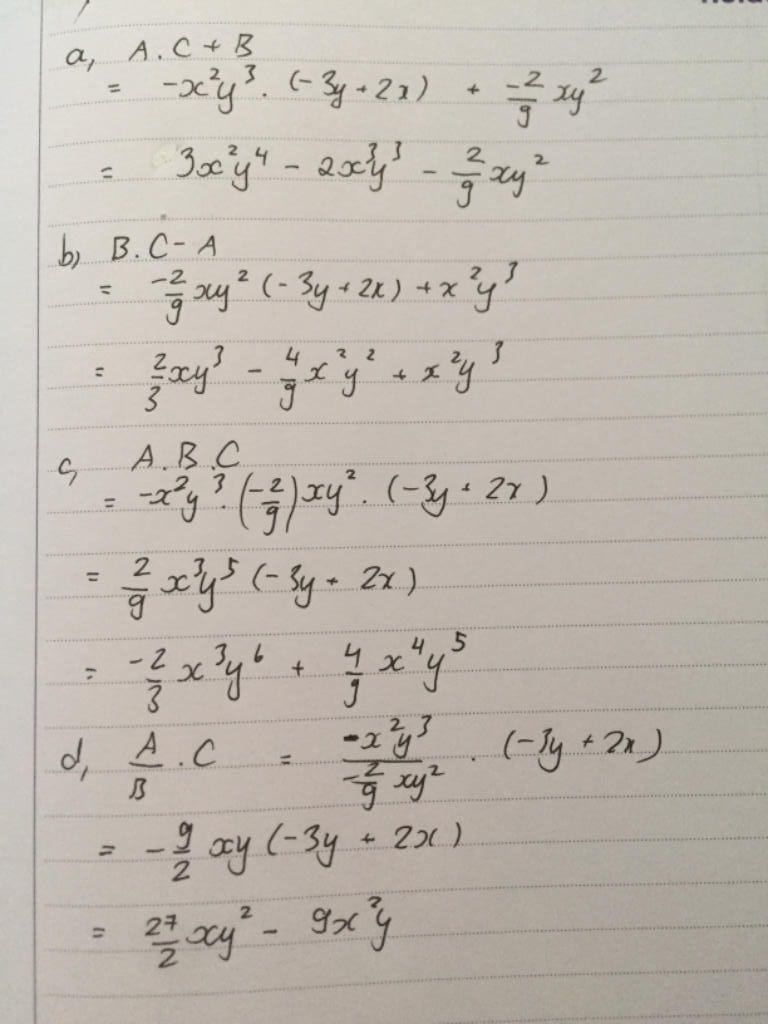 a, A.C + B
= -x²y³. (-3y + 2x) + -2/9 xy²
= 3x²y⁴ - 2x³y³ - 2/9 xy²
b, B.C - A
= -2/9 xy² (-3y + 2x) + x²y³
= 2/3 xy³ - 4/9 x²y² + x²y³
c, A.B.C
= -x²y³. (-2/9) xy². (-3y + 2x)
= 2/9 x³y⁵ (-3y + 2x)
= -2/3 x³y⁶ + 4/9 x⁴y⁵
d, A/B . C = -x²y³ / -2/9 xy² . (-3y + 2x)
= -9/2 xy (-3y + 2x)
= 27/2 xy² - 9x²y